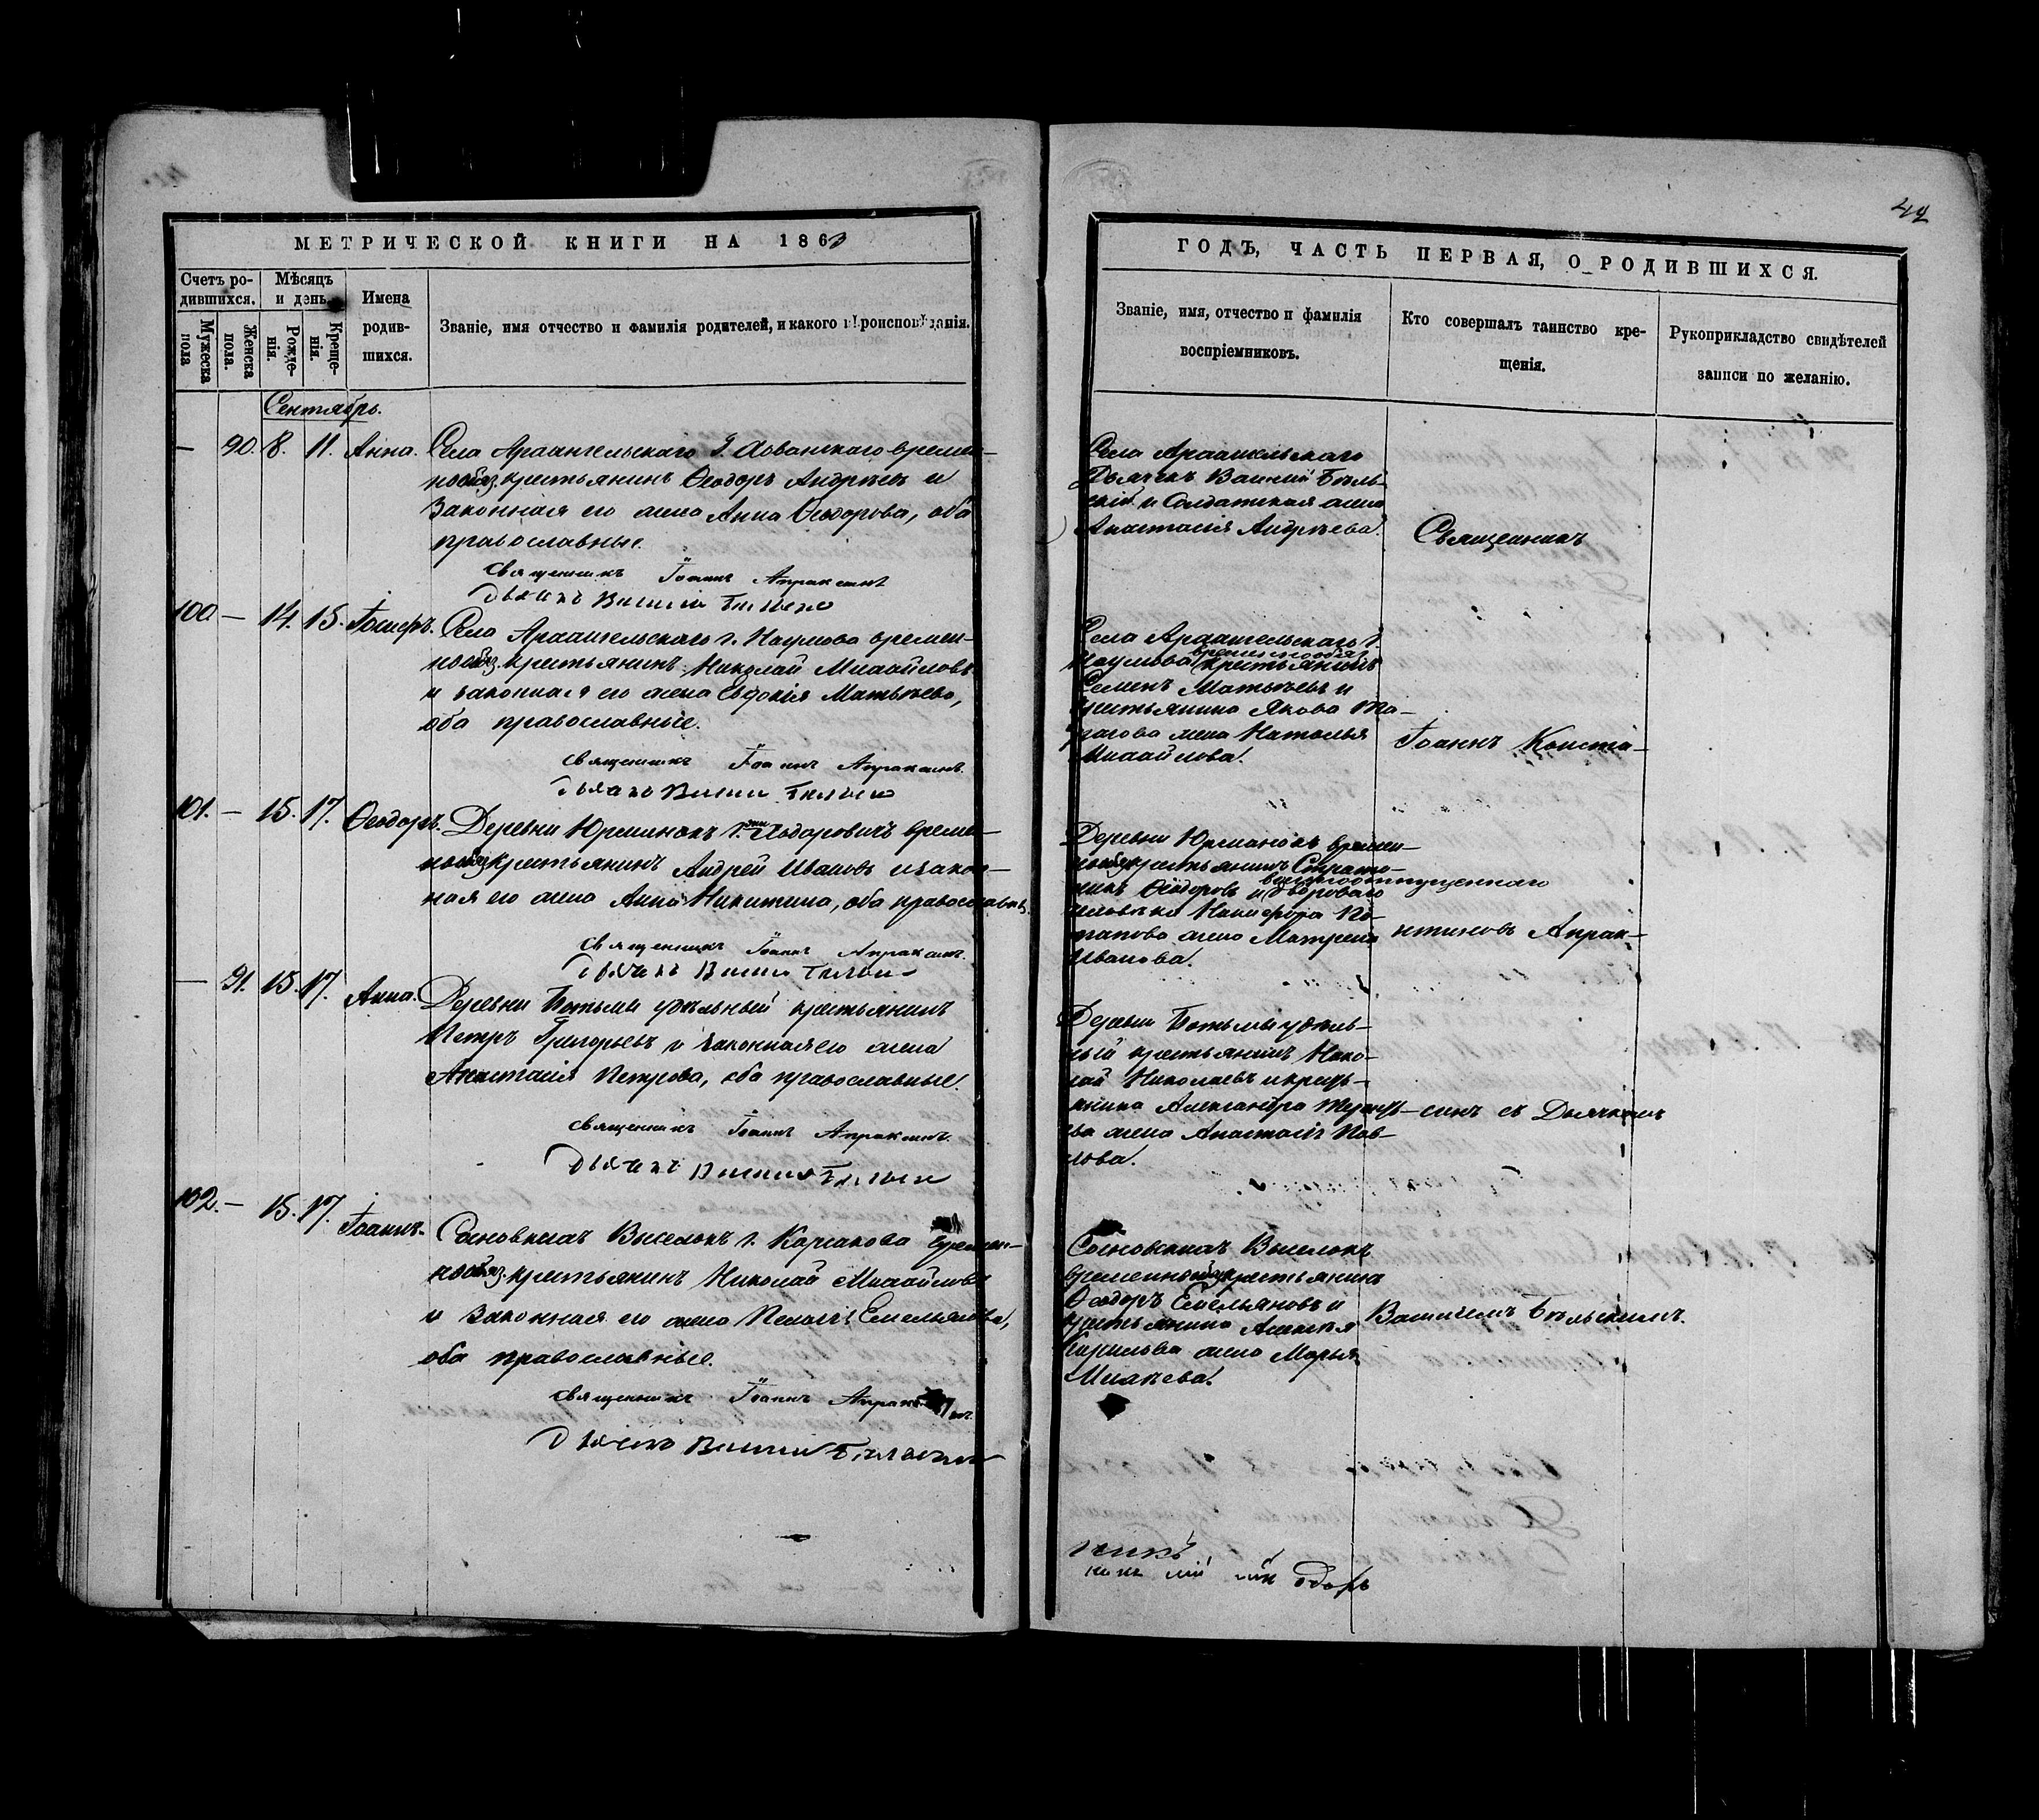 42
МЕТРИЧЕСКОЙ КНИГИ НА 1863
Счетъ ро-
дившихся.
Мѣсяцъ
и день
Имена
родив-
шихся.
Званіе, имя отчество и фамилія родителей, и какого вѣроисповѣданія.
Мужеска
пола
Женска
пола.
Рожде-
нія.
Креще-
нія.
Сентябрь.
— 90. 8. 11. Анна. Села Архангельскаго г. времен-
нообяз. крестьянинъ Ѳеодоръ Андреевъ и
законная его жена Анна Ѳеодорова, оба
православные.
Священникъ Іоаннъ Апраксинъ
Дьячекъ Василій Бѣльскій
100 — 14. 15. Іосифъ. Села Архангельскаго г. Наумова времен-
нообяз. крестьянинъ Николай Михайловъ
и законная его жена Евдокія Матвѣева,
оба православные.
Священникъ Іоаннъ Апраксинъ.
Дьячекъ Василій Бѣльскій
101. — 15. 17. Ѳеодоръ. Деревни Юрманокъ г. времен-
нообяз. крестьянинъ Андрей Ивановъ и закон-
ная его жена Анна Никитина, оба православн.
Священникъ Іоаннъ Апраксинъ.
Дьячекъ Василій Бѣльскій
— 91. 15. 17. Анна. Деревни Ботьмы удѣльный крестьянинъ
Петръ Григорьевъ и законная его жена
Анастасія Петрова, оба православные.
Священникъ Іоаннъ Апраксинъ.
Дьячекъ Василій Бѣльскій
102. — 15. 17. Іоаннъ. Сосновскихъ Выселокъ г. Карсакова времен-
нообяз. крестьянинъ Николай Михайловъ
и законная его жена Емельянова,
оба православные.
Священникъ Іоаннъ Апраксинъ.
Дьячекъ Василій Бѣльскій
ГОДЪ, ЧАСТЬ ПЕРВАЯ, О РОДИВШИХСЯ.
Званіе, имя, отчество и фамилія
воспріемниковъ.
Кто совершалъ таинство кре-
щенія.
Рукоприкладство свидѣтелей
записи по желанію.
Села Архангельскаго
Дьячекъ Василій Бѣль-
скій и Солдатская жена
Анастасія Андреева.
Священникъ
Села Архангельскаго г.
Наумова временнообяз. крестьянинъ
Семенъ Матвѣевъ и
крестьянина Якова
жена Наталья
Михайлова.
Іоаннъ Конста-
Деревни Юрманокъ времен-
нообяз. крестьянинъ
Ѳеодоровъ и вольноотпущеннаго двороваго
человѣка Никифора По-
тапова жена Матрена
Иванова.
нтиновъ Апрак-
Деревни Ботьмы удѣль-
ный крестьянинъ Нико-
лай Николаевъ и кресть-
янина Александра
жена Анастасія Пав-
лова.
синъ съ Дьячкомъ
Сосновскихъ Выселокъ
временнообяз. крестьянинъ
Ѳеодоръ Емельяновъ и
крестьянина Алексѣя
Кирилова жена Марья
Василіемъ Бѣльскимъ.